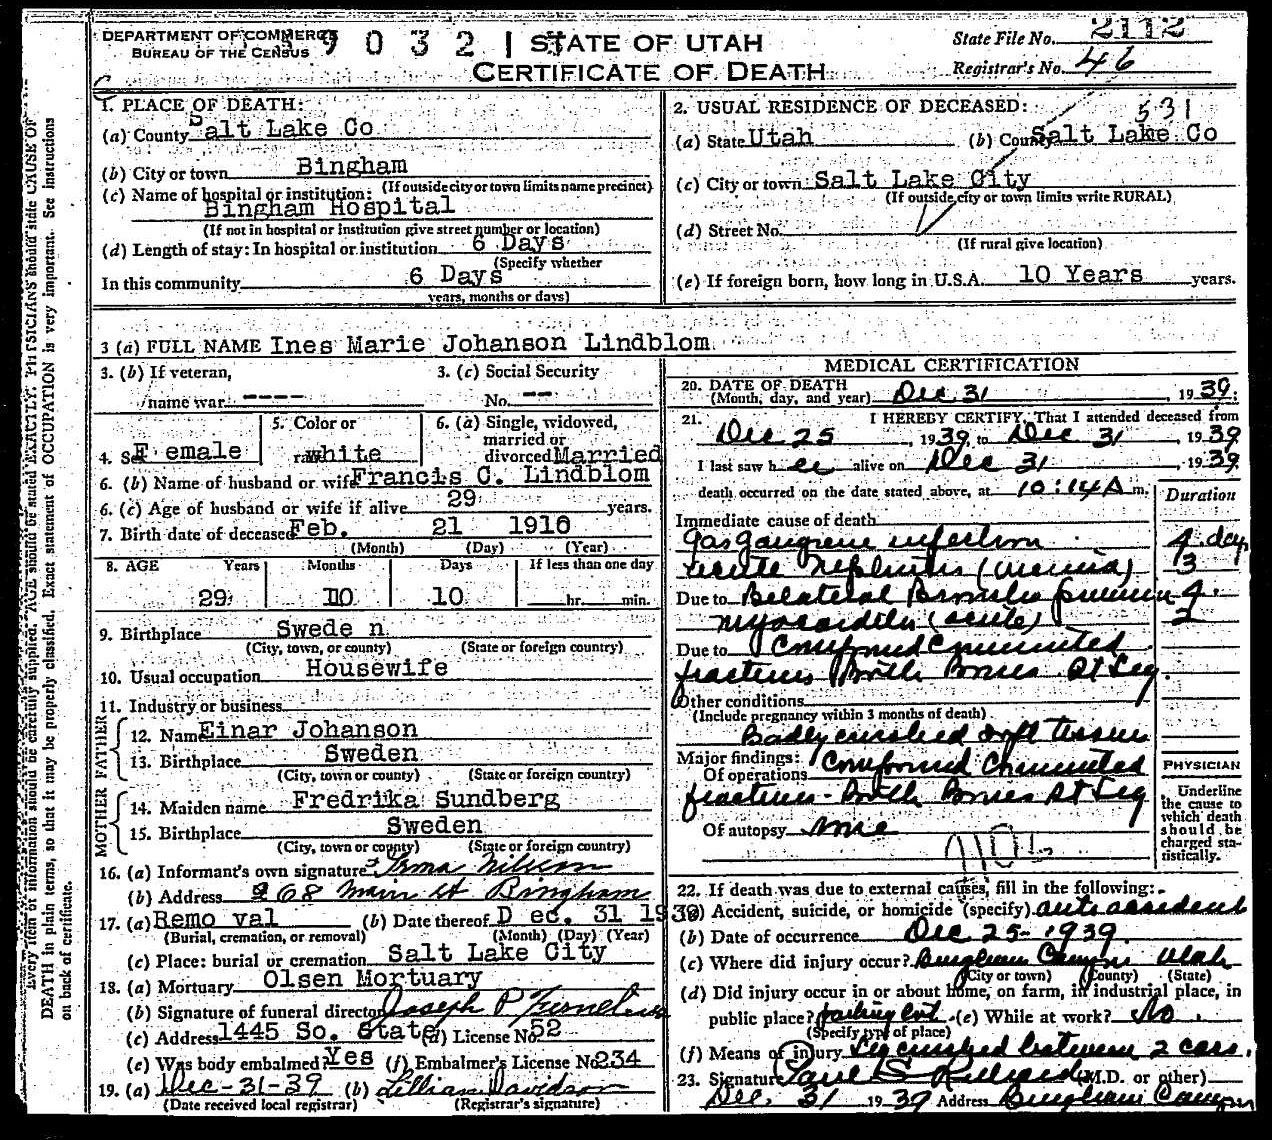 DEPARTMENT OF COMMERCE
BUREAU OF THE CENSUS
9 0 3 2 1
STATE OF UTAH
CERTIFICATE OF DEATH
State File No. 2112
Registrar's No. 46
1. PLACE OF DEATH:
(a) County Salt Lake Co
(b) City or town Bingham
(If outside city or town limits name precinct)
(c) Name of hospital or institution:
Bingham Hospital
(If not in hospital or institution give street number or location)
(d) Length of stay: In hospital or institution 6 Days
(Specify whether
In this community 6 Days
years, months or days)
2. USUAL RESIDENCE OF DECEASED:
531
(a) State Utah (b) County Salt Lake Co
(c) City or town Salt Lake City
(If outside city or town limits write RURAL)
(d) Street No.
(If rural give location)
(e) If foreign born, how long in U.S.A. 10 Years years.
3 (a) FULL NAME Ines Marie Johanson Lindblom
3. (b) If veteran,
name war ----
3. (c) Social Security
No. --
4. Sex Female
5. Color or
race white
6. (a) Single, widowed,
married or
divorced Married
6. (b) Name of husband or wife Francis C. Lindblom
6. (c) Age of husband or wife if alive 29 years.
7. Birth date of deceased Feb. 21 1910
(Month) (Day) (Year)
8. AGE Years Months Days If less than one day
29 10 10 hr. min.
9. Birthplace Swede n
(City, town, or county) (State or foreign country)
10. Usual occupation Housewife
11. Industry or business
FATHER
12. Name Einar Johanson
13. Birthplace Sweden
(City, town or county) (State or foreign country)
MOTHER
14. Maiden name Fredrika Sundberg
15. Birthplace Sweden
(City, town or county) (State or foreign country)
16. (a) Informant's own signature Irma Nilsson
(b) Address 268 Main St Bingham
17. (a) Remo val (b) Date thereof D ec. 31 1939
(Burial, cremation, or removal) (Month) (Day) (Year)
(c) Place: burial or cremation Salt Lake City
18. (a) Mortuary Olsen Mortuary
(b) Signature of funeral director Joseph P
(c) Address 1445 So. State (d) License No. 52
(e) Was body embalmed? Yes (f) Embalmer's License No. 234
19. (a) Dec-31-39 (b) Lillian Davidson
(Date received local registrar) (Registrar's signature)
MEDICAL CERTIFICATION
20. DATE OF DEATH
(Month, day, and year) Dec 31, 1939.
21. I HEREBY CERTIFY, That I attended deceased from
Dec 25, 1939 to Dec 31, 1939
I last saw her alive on Dec 31, 1939
death occurred on the date stated above, at 10:14 A m.
Duration
Immediate cause of death
Gas gangrene infection 4 days
Acute Nephritis (uremia) 3
Due to Bilateral Broncho pneumon 4
myocarditis (acute) 2
Due to Compound Comminuted
fractures Both Bones Rt Leg.
Other conditions
(Include pregnancy within 3 months of death)
Badly crushed soft tissue
Major findings:
Of operations Compound Comminuted
fractures - Both Bones Rt Leg
Of autopsy none
PHYSICIAN
Underline
the cause to
which death
should be
charged sta-
tistically.
22. If death was due to external causes, fill in the following:
(a) Accident, suicide, or homicide (specify) auto accident
(b) Date of occurrence Dec 25 - 1939.
(c) Where did injury occur? Bingham Canyon Utah
(City or town) (County) (State)
(d) Did injury occur in or about home, on farm, in industrial place, in
public place? parking lot. (e) While at work? No.
(Specify type of place)
(f) Means of injury Leg crushed between 2 cars.
23. Signature Paul S Richards (M.D. or other)
Dec. 31 1939 Address Bingham Canyon
Every item of information should be carefully supplied. AGE should be stated EXACTLY. PHYSICIANS should state CAUSE OF
DEATH in plain terms, so that it may be properly classified. Exact statement of OCCUPATION is very important. See instructions
on back of certificate.